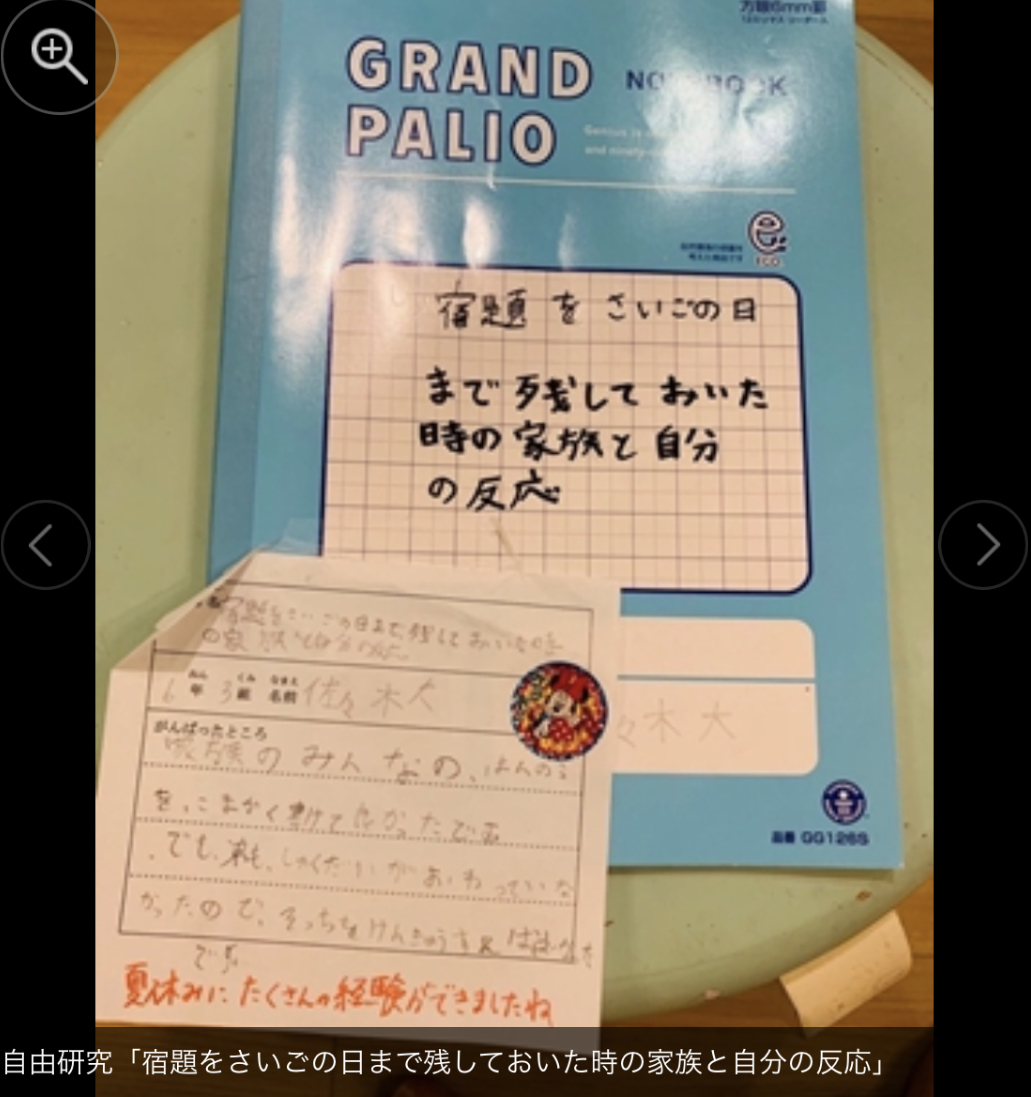 方眼6mm罫
GRAND
PALIO
NOTEBOOK
Genius is
and ninety-
ECO
宿題をさいごの日
まで残しておいた
時の家族と自分
の反応
宿題をさいごの日まで残しておいた時
の家族と自分の反応
6年3組 名前 佐々木大
々木大
がんばったところ
家族のみんなの、はんのう
を、こまかく書けて良かったです
でも、
しゅくだいがおわっていな
かったので、そっちも
です
夏休みにたくさんの経験ができましたね
品番 GG126S
自由研究「宿題をさいごの日まで残しておいた時の家族と自分の反応」